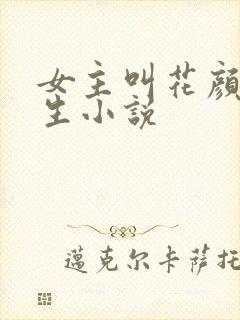 女主叫花顏
生小説
邁克尔卡薩托